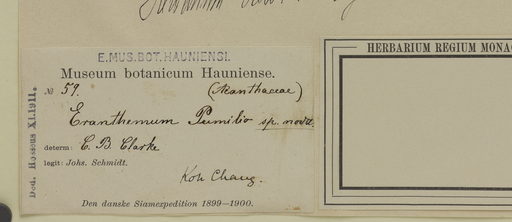 E.MUS.BOT.HAUNIENSI.
Museum botanicum Hauniense.
№ 59. (Acanthaceae)
Eranthemum Pumilio sp. nova.
determ: C. B. Clarke
legit: Johs. Schmidt.
Koh Chang.
Den danske Siamexpedition 1899—1900.
Ded. Hosseus XI.1911.
HERBARIUM REGIUM MONAC